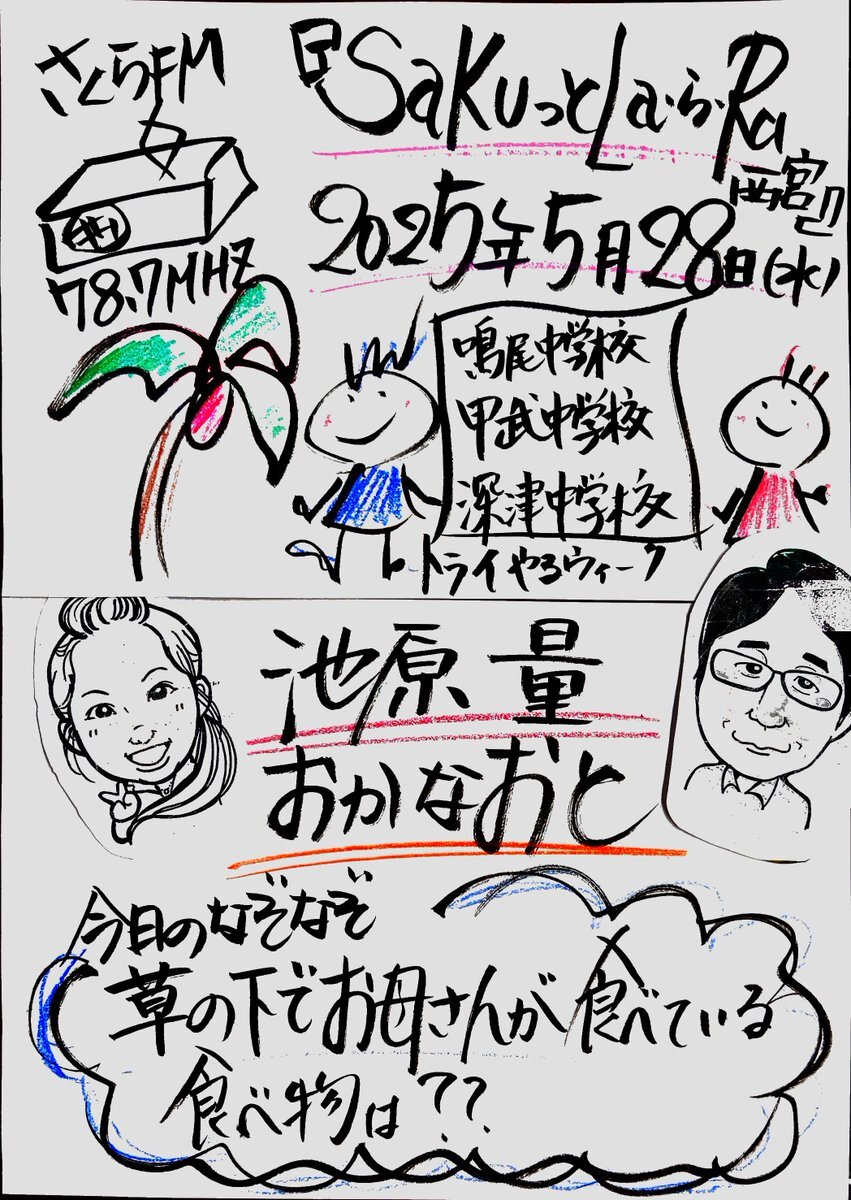 さくらFM
78.7MHZ
SaKuっとLa・ら・Ra
西宮
2025年5月28日(水)
鳴尾中学校
甲武中学校
深津中学校
トライやるウィーク
池原 量
おかなおと
今日のなぞなぞ
草の下でお母さんが食べている
食べ物は??